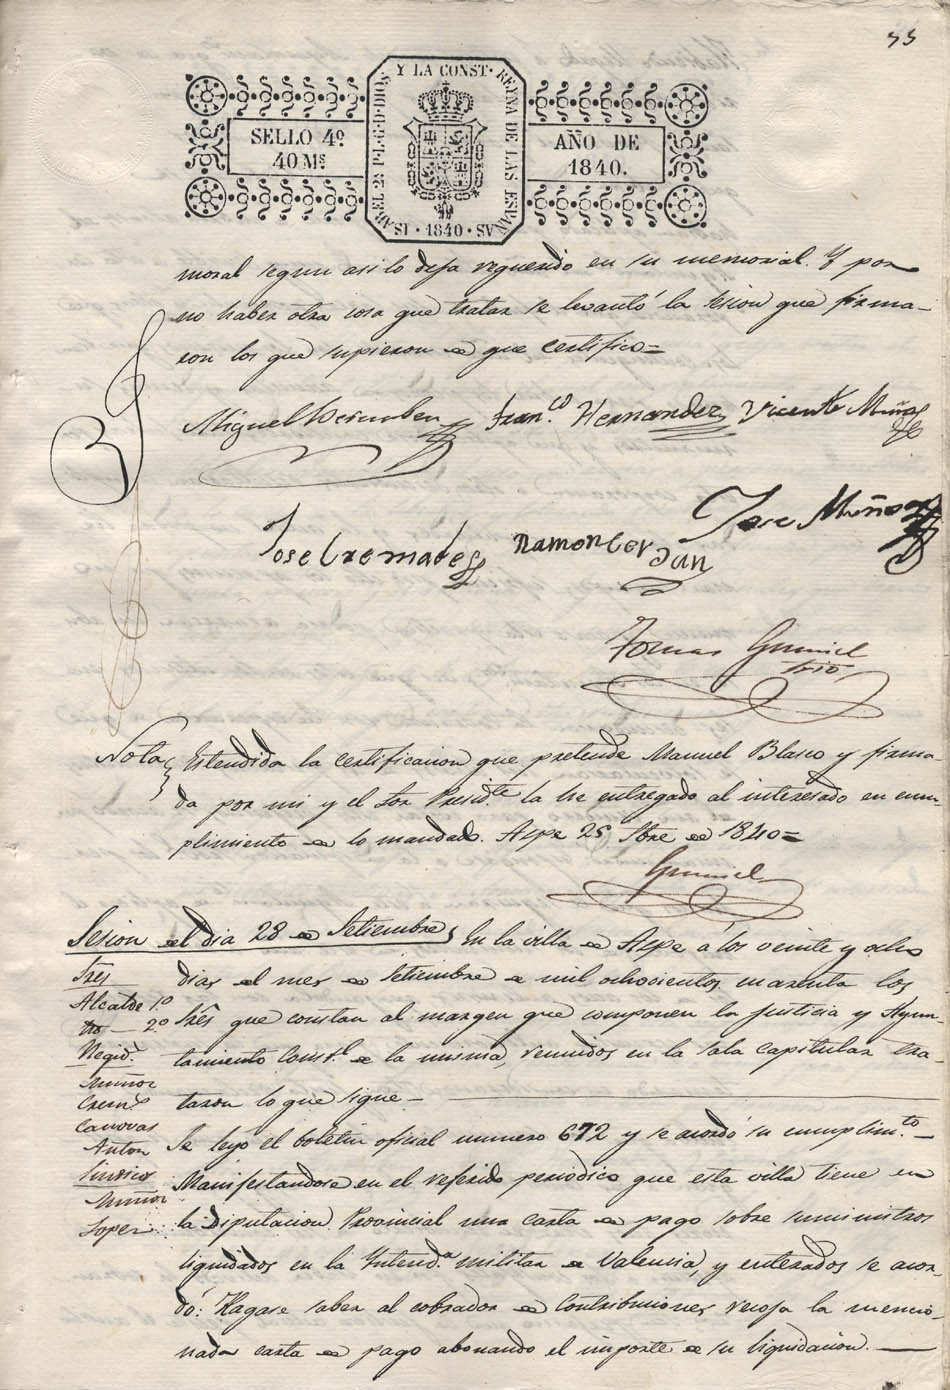 55
ISABEL 2ª P.L.G.D.DIOS Y LA CONST. REYNA DE LAS ESPAÑAS · 1840 ·
SELLO 4º
40 Mˢ
AÑO DE
1840.
moral segun asi lo deja requerido en su memorial. Y por
no haber otra cosa que tratar se levantó la sesion que firma-
ron los que supieron de que certifico=
Miguel Franᶜᵒ Hernandez Vicente Muñoz
Jose Cremades Ramon Cerdan Jose Muñoz
Tomas Gumiel
Srio
Nota Estendida la certificacion que pretende Manuel Blasco y firma-
da por mi y el Sor Presidᵗᵉ la he entregado al interesado en cum-
plimiento de lo mandado. Aspe 25 7bre de 1840=
Gumiel
Sesion del dia 28 de Setiembre En la villa de Aspe á los veinte y ocho
Sres dias del mes de Setiembre de mil ochocientos cuarenta los
Alcalde 1º
tro — 2º Sres que constan al margen que componen la Justicia y Ayun-
Regidˢ tamiento Consᵗˡ de la misma, reunidos en la sala capitular tra-
Muñoz
Cremˢ taron lo que sigue —
Canovas
Anton Se leyó el boletin oficial numero 672 y se acordó su cumplimᵗᵒ —
Sindico Manifestandose en el referido periodico que esta villa tiene en
Muñoz
Soper la Diputacion Provincial una carta de pago sobre suministros
liquidados en la Intendᵃ militar de Valencia, y enterados se acor-
dó: Hagase saber al cobrador de Contribuciones recoja la mencio-
nada carta de pago abonando el importe de su liquidacion. —